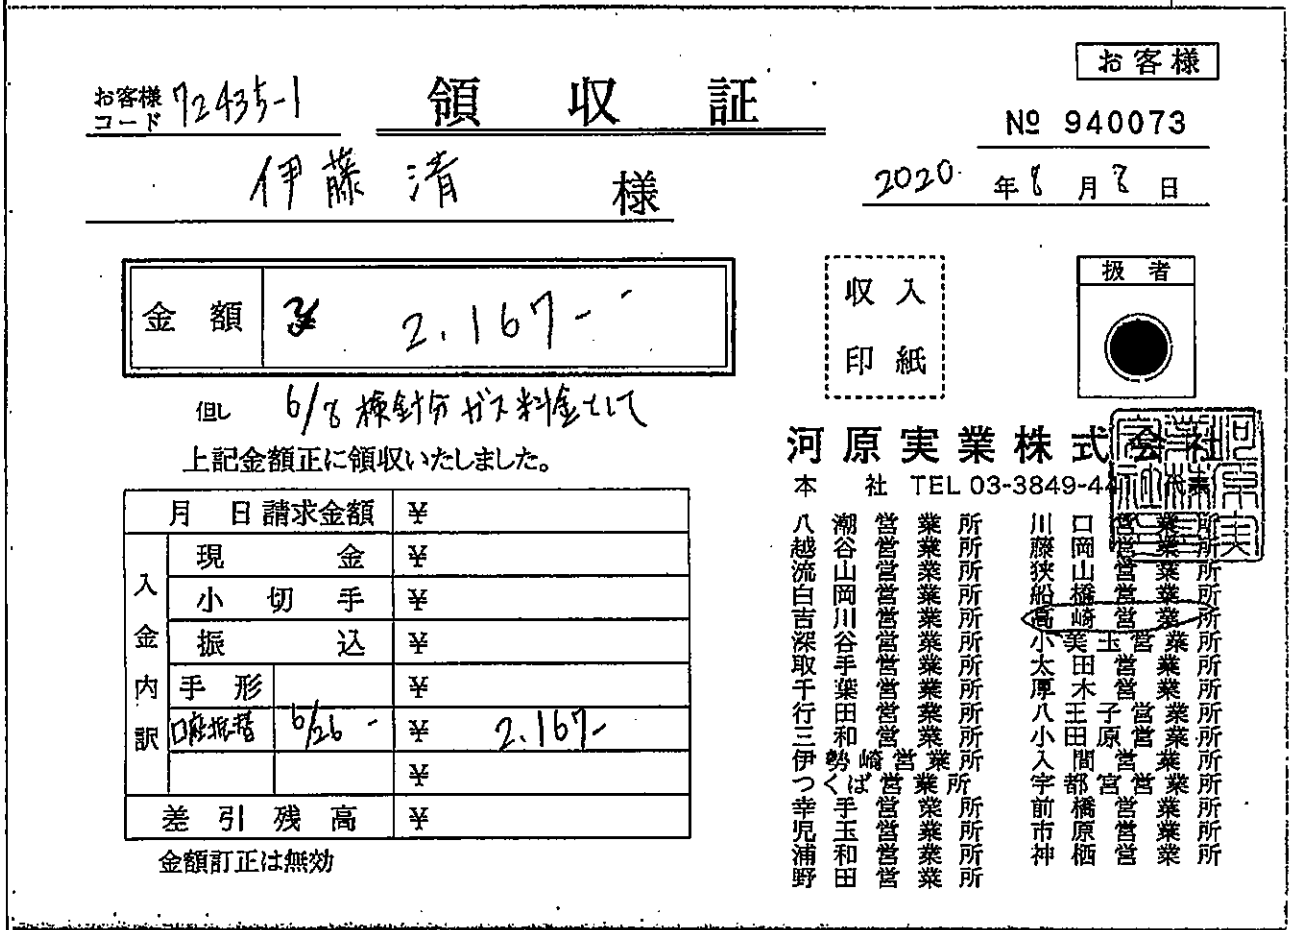 お客様
お客様コード 72435-1
領収証
№ 940073
伊藤 清 様
2020年8月8日
金額 ¥ 2.167-
収入印紙
扱者
但し 6/8 検針分ガス料金として
上記金額正に領収いたしました。
河原実業株式会社
本社 TEL 03-3849-44 代表
月 日 請求金額 ¥
入金内訳
現金 ¥
小切手 ¥
振込 ¥
手形 ¥
口座振替 6/26 - ¥ 2.167-
¥
差引残高 ¥
金額訂正は無効
八潮営業所
越谷営業所
流山営業所
白岡営業所
吉川営業所
深谷営業所
取手営業所
千葉営業所
行田営業所
三和営業所
伊勢崎営業所
つくば営業所
幸手営業所
児玉営業所
浦和営業所
野田営業所
川口営業所
藤岡営業所
狭山営業所
船橋営業所
高崎営業所
小美玉営業所
太田営業所
厚木営業所
八王子営業所
小田原営業所
入間営業所
宇都宮営業所
前橋営業所
市原営業所
神栖営業所